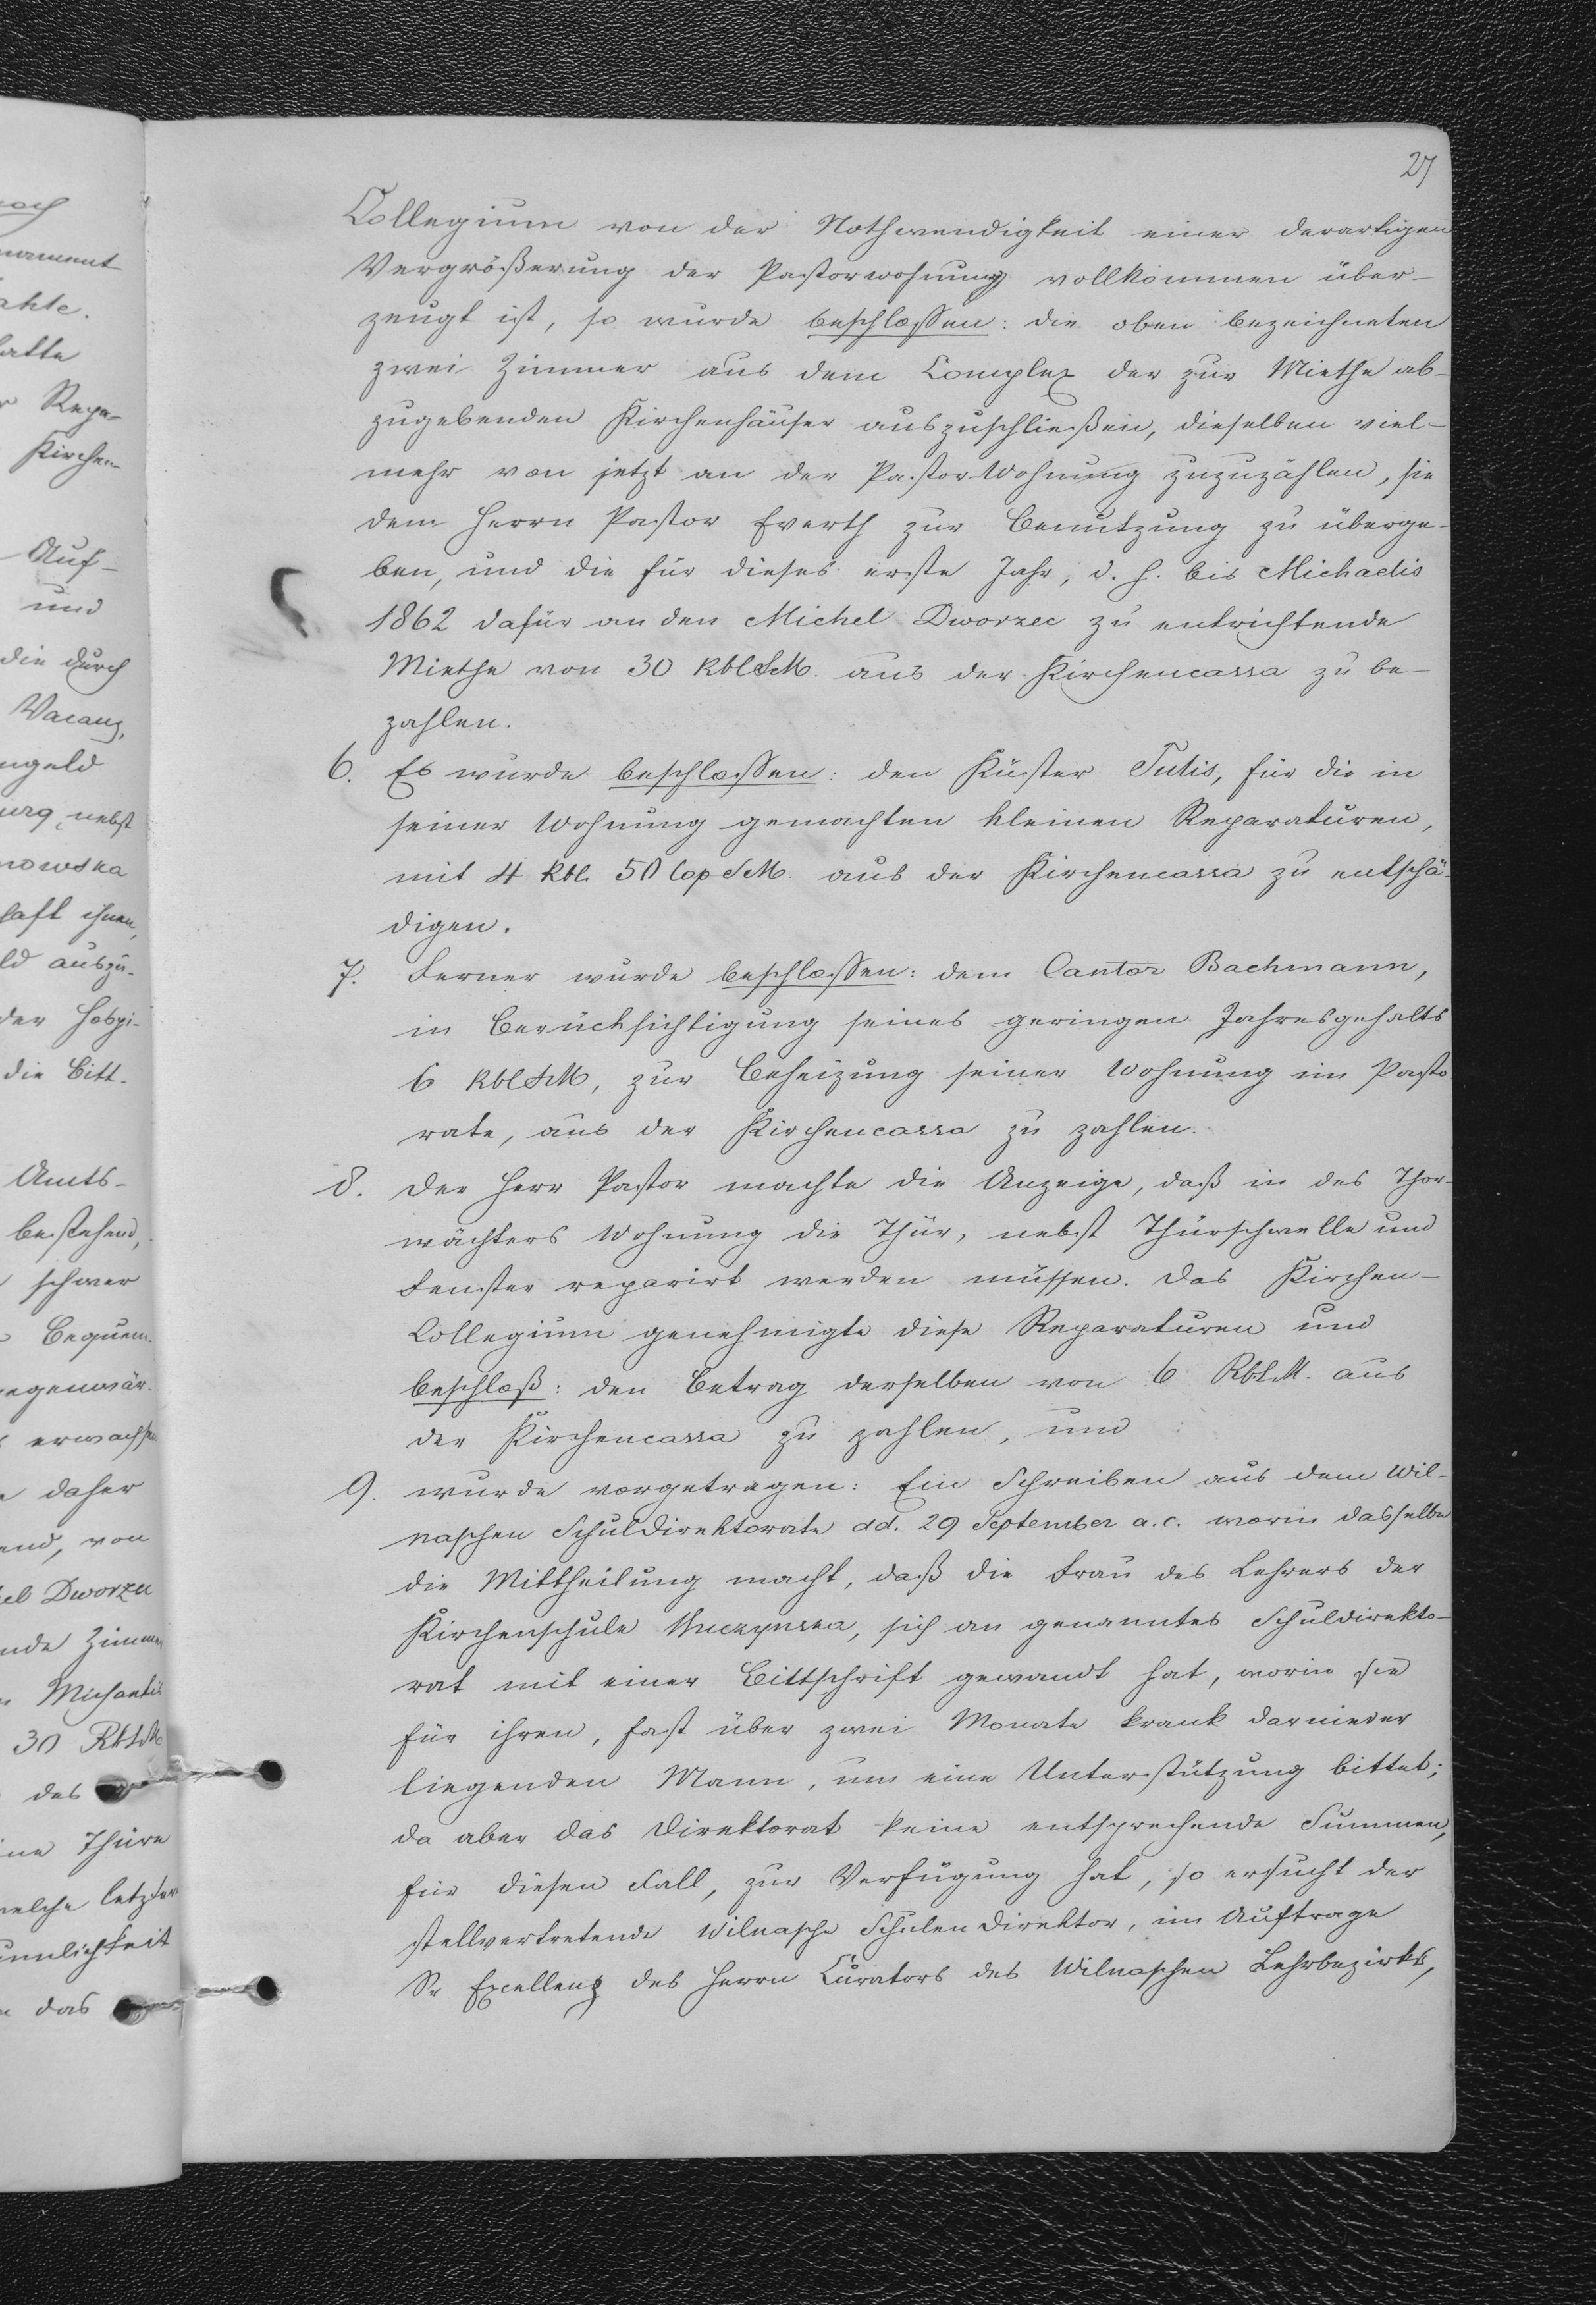 27
Collegium von der Nothwendigkeit einer derartigen
Vergrößerung der Pastorwohnung vollkommen über-
zeugt ist, so wurde beschlossen: die oben bezeichneten
zwei Zimmer aus dem Complex der zur Miethe ab-
zugebenden Kirchenhäuser auszuschließen, dieselben viel-
mehr von jetzt an der Pastor-Wohnung zuzuzählen, sie
dem Herrn Pastor Everth zur Benutzung zu überge-
ben, und die für dieses erste Jahr, d. h. bis Michaelis
1862 dafür an den Michel Dworzec zu entrichtende
Miethe von 30 Rbl S.M. aus der Kirchencassa zu be-
zahlen.
6. Es wurde beschlossen: den Küster Tutis, für die in
seiner Wohnung gemachten kleinen Reparaturen,
mit 4 Rbl. 50 Cop S.M. aus der Kirchencassa zu entschä-
digen.
7. Ferner wurde beschlossen: dem Cantor Bachmann,
in Berücksichtigung seines geringen Jahresgehalts
6 Rbl S.M, zur Beheizung seiner Wohnung im Pasto
rate, aus der Kirchencassa zu zahlen.
8. Der Herr Pastor machte die Anzeige, daß in des Thor-
wächters Wohnung die Thür, nebst Thürschwelle und
Fenster reparirt werden müssen. Das Kirchen-
Collegium genehmigte diese Reparaturen und
beschloß: den Betrag derselben von 6 Rbl S.M. aus
der Kirchencassa zu zahlen, und
9. wurde vorgetragen: Ein Schreiben aus dem Wil-
naschen Schuldirektorate dd. 29 September a.c. worin dasselbe
die Mittheilung macht, daß die Frau des Lehrers der
Kirchenschule sich an genanntes Schuldirekto-
rat mit einer Bittschrift gewandt hat, worin sie
für ihren, fast über zwei Monate krank darnieder
liegenden Mann, um eine Unterstützung bittet;
da aber das Direktorat keine entsprechende Summen,
für diesen Fall, zur Verfügung hat, so ersucht der
stellvertretende Wilnasche Schulendirektor, im Auftrage
Sr Excellenz des Herrn Curators des Wilnaschen Lehrbezirks,